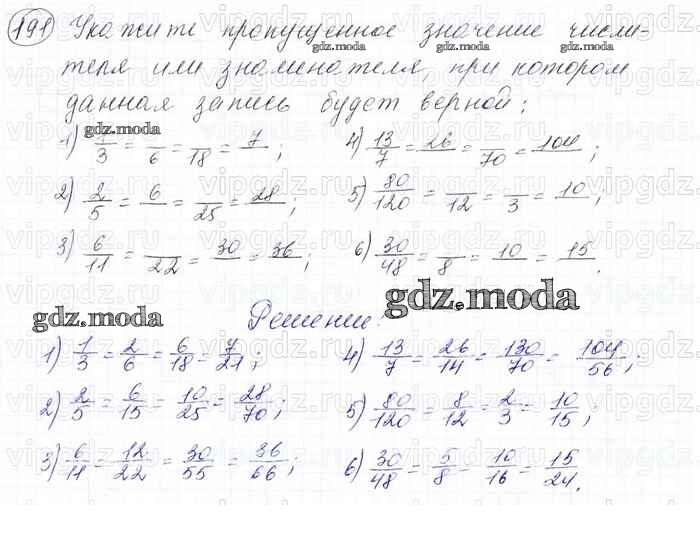 191 Укажите пропущенное значение числи-
теля или знаменателя, при котором
данная запись будет верной:
1) 1/3 = /6 = /18 = 7/ ;
4) 13/7 = 26/ = /70 = 104/ ;
2) 2/5 = 6/ = /25 = 28/ ;
5) 80/120 = /12 = /3 = 10/ ;
3) 6/11 = /22 = 30/ = 36/ ;
6) 30/48 = /8 = 10/ = 15/ .
gdz.moda
Решение:
1) 1/3 = 2/6 = 6/18 = 7/21 ;
4) 13/7 = 26/14 = 130/70 = 104/56 ;
2) 2/5 = 6/15 = 10/25 = 28/70 ;
5) 80/120 = 8/12 = 2/3 = 10/15 ;
3) 6/11 = 12/22 = 30/55 = 36/66 ;
6) 30/48 = 5/8 = 10/16 = 15/24 .